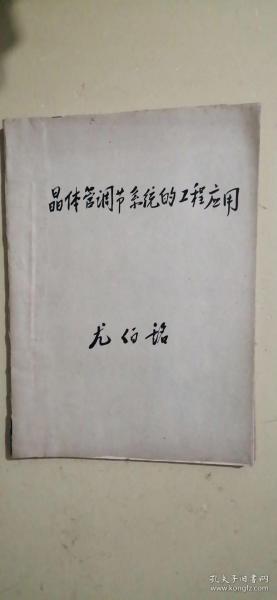 晶体管调节系统的工程应用
尤伯铭
孔夫子旧书网
www.kongfz.com